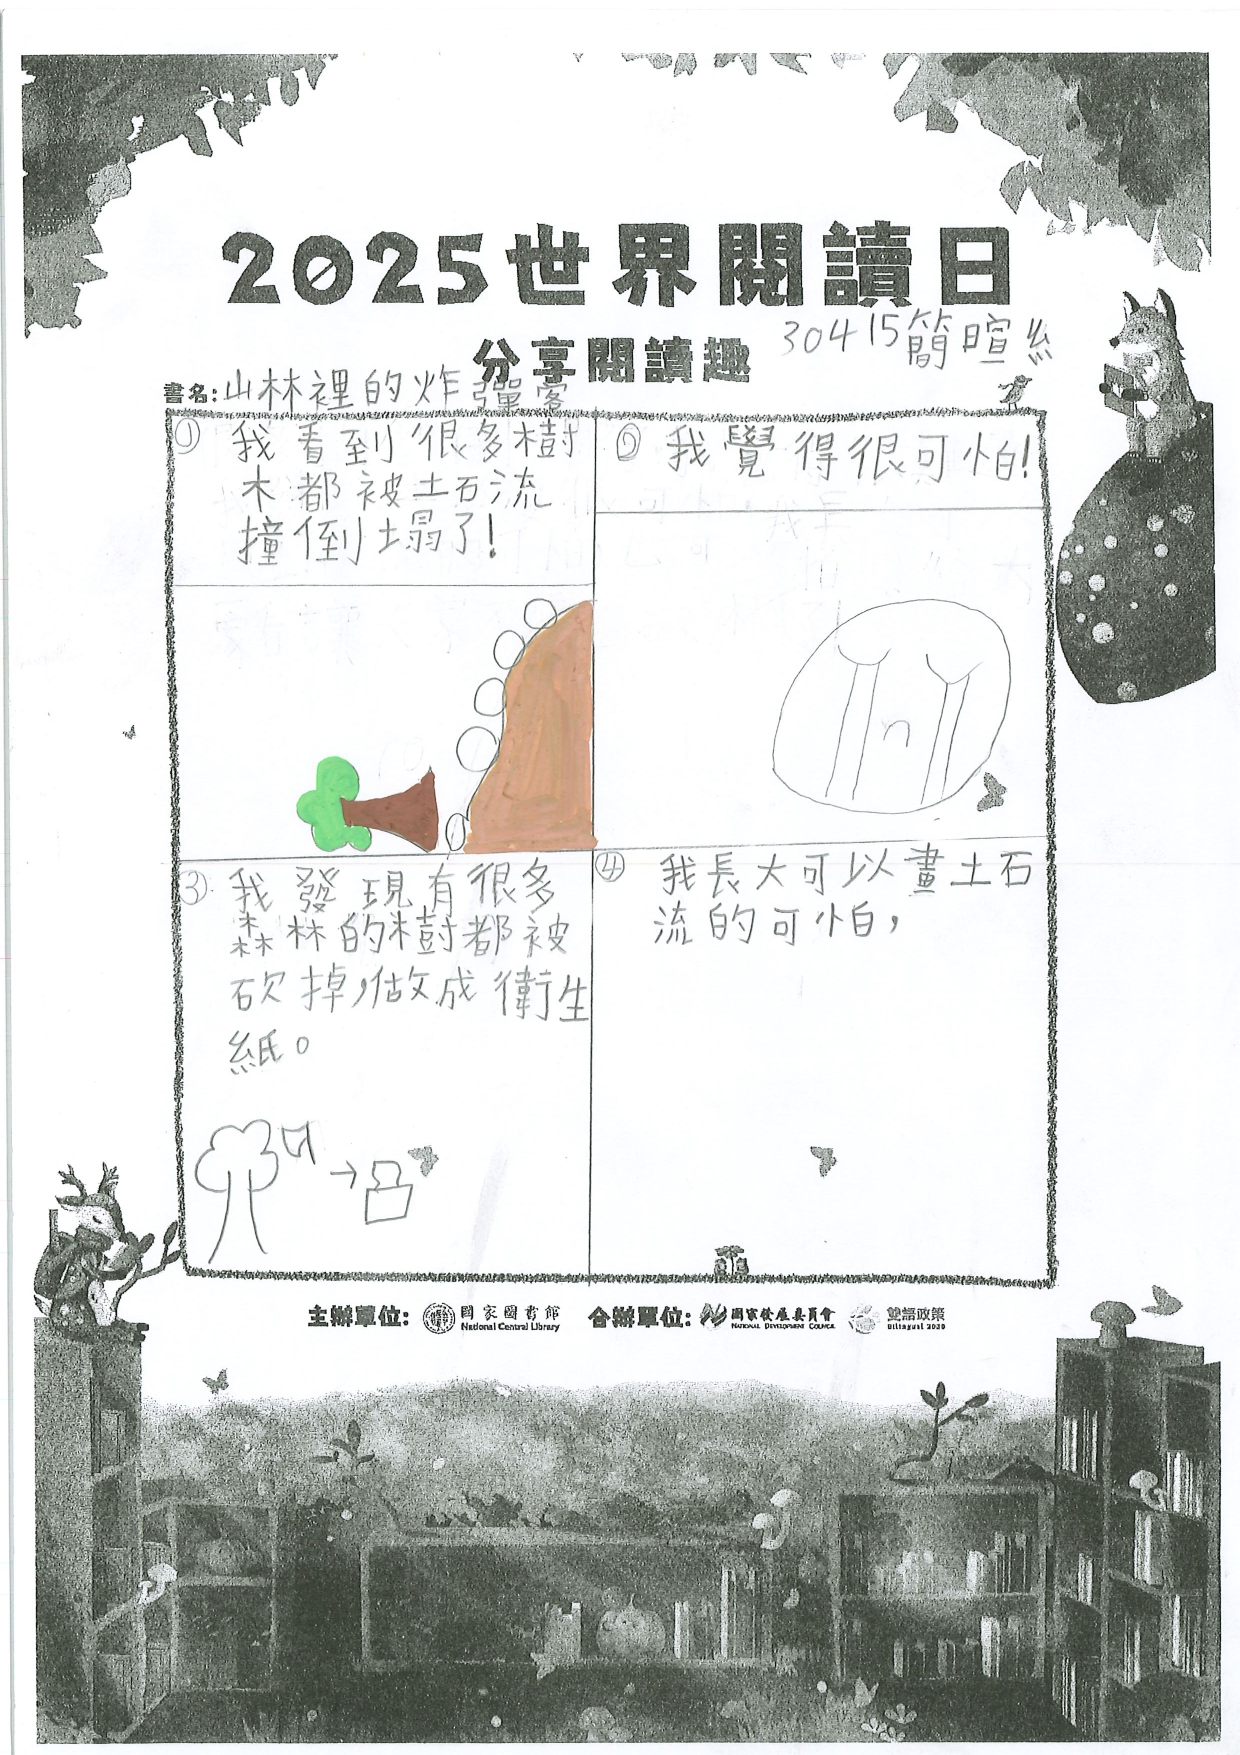 2025世界閱讀日
分享閱讀趣
30415簡暄
書名:山林裡的炸彈客
① 我看到很多樹
木都被土石流
撞倒土塌了!
② 我覺得很可怕!
③ 我發現有很多
森林的樹都被
砍掉,做成衛生
紙。
④ 我長大可以畫土石
流的可怕,
主辦單位: 國家圖書館 合辦單位: 國家發展委員會 雙語政策
National Central Library NATIONAL DEVELOPMENT COUNCIL Bilingual 2030